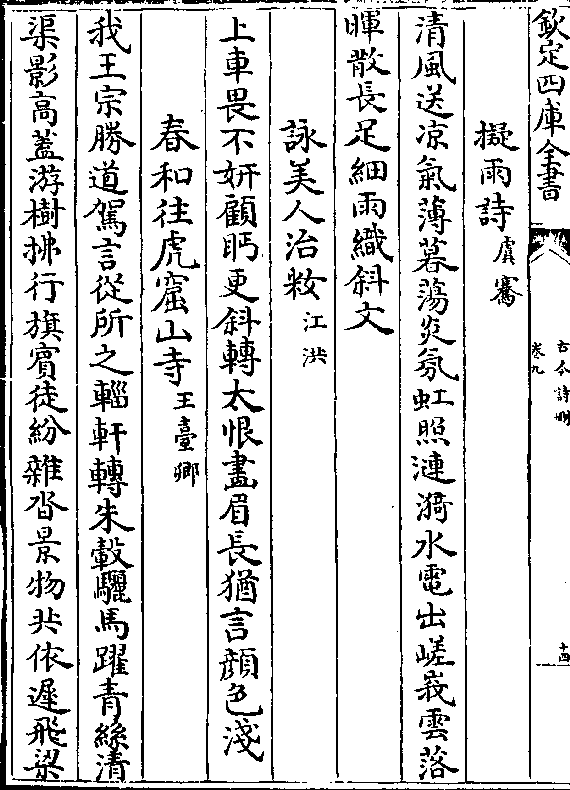 欽定四庫全書
古今詩刪
卷九
十四
擬雨詩虞騫
清風送凉氣薄暮蕩炎氛虹照漣漪水電出嵯峩雲落
暉散長足細雨織斜文
詠美人治妝江洪
上車畏不妍顧眄更斜轉太恨畫眉長猶言顔色淺
春和往虎窟山寺王臺卿
我王宗勝道駕言從所之輜軒轉朱轂驪馬躍青絲清
渠影高蓋游樹拂行旗賓徒紛雜沓景物共依遲飛梁